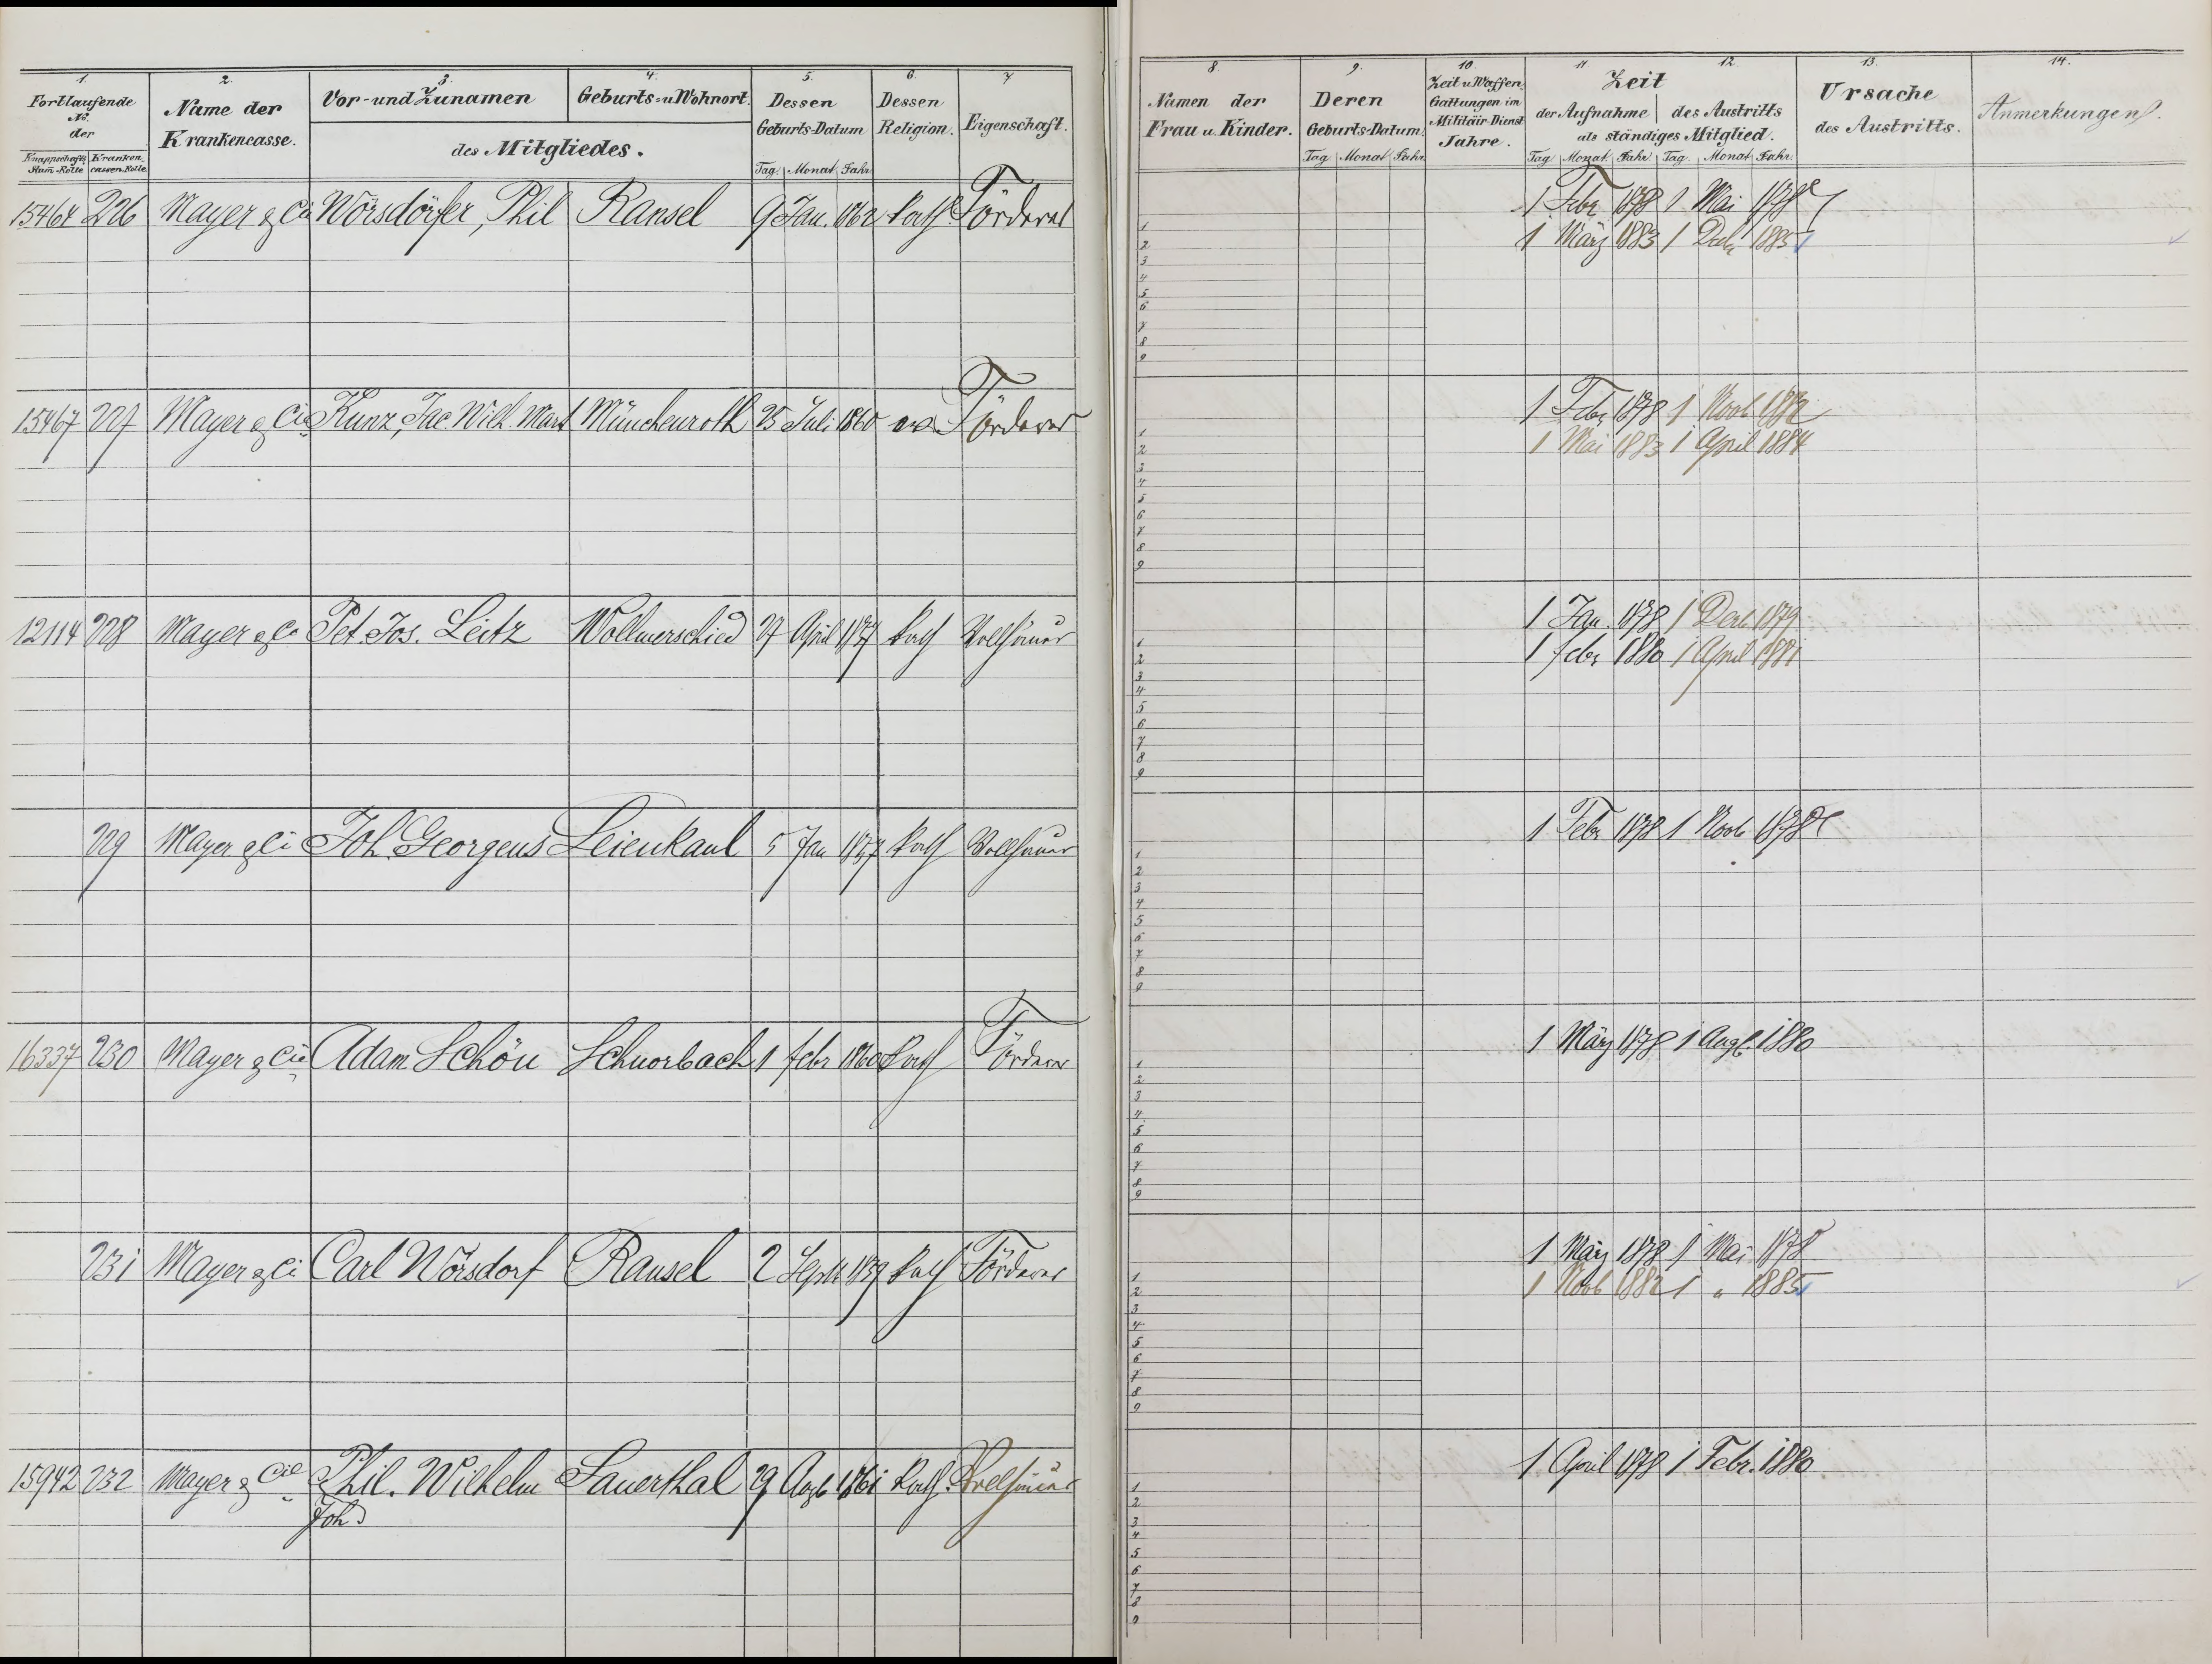 1. 2. 3. 4. 5. 6. 7
Fortlaufende No. der
Knappschafts Stam-Rolle Kranken-cassen-Rolle
Name der Krankencasse.
Vor- und Zunamen Geburts- u. Wohnort.
des Mitgliedes.
Dessen Geburts-Datum
Tag. Monat. Jahr.
Dessen Religion.
Eigenschaft.
8 9. 10. 11. 12. 13. 14.
Namen der Frau u. Kinder.
Deren Geburts-Datum.
Tag Monat Jahr.
Zeit u. Waffen Gattungen im Militäir-Dienst Jahre.
Zeit
der Aufnahme des Austritts
als ständiges Mitglied.
Tag Monat. Jahr. Tag. Monat Jahr.
Ursache des Austritts.
Anmerkungen.
226 Mayer & Cie Wörsdörfer, Phil Ransel 9 Jan. 1862 Kath. Förderer 1 Febr 1878 1 Mai 1878
1 März 1883 1 Decbr 1885
15467 227 Mayer & Cie Kunz, Jac Wilh. Mart Münchenroth 25 Juli 1860 ev. Förderer 1 Febr 1878 1 Novb 1882
1 Mai 1883 1 April 1884
12114 228 Mayer & Co Pet. Jos. Leitz Wollmerschied 27 April 1837 Kath Vollhäuer 1 Jan. 1878 1 Decb. 1879
1 Febr 1880 1 April 1881
229 Mayer & Ci Joh. Georgens Leienkaul 5 Jan Kath Vollhäuer 1 Febr 1878 1 Novb 1878
16337 230 Mayer & Cie Adam Schön Schnorbach 1 Febr 1860 Kath Förderer 1 März 1878 1 Augt. 1880
231 Mayer & Ci Carl Wörsdorf Ransel 2 Septb Kath Förderer 1 März 1878 1 Mai 1878
1 Novb 1882 1 " 1885
15942 232 Mayer & Cie Phil. Wilhelm Sauerthal 29 Augb 1861 Kath. Vollhäuer 1 April 1878 1 Febr. 1880
Joh.
1
2
3
4
5
6
7
8
9
1
2
3
4
5
6
7
8
9
1
2
3
4
5
6
7
8
9
1
2
3
4
5
6
7
8
9
1
2
3
4
5
6
7
8
9
1
2
3
4
5
6
7
8
9
1
2
3
4
5
6
7
8
9